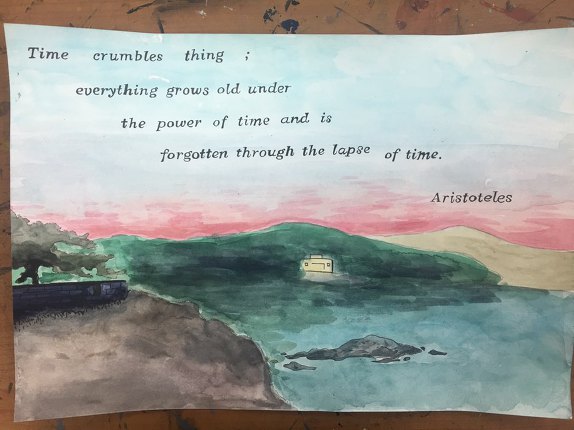 Time crumbles thing ;
everything grows old under
the power of time and is
forgotten through the lapse of time.
Aristoteles